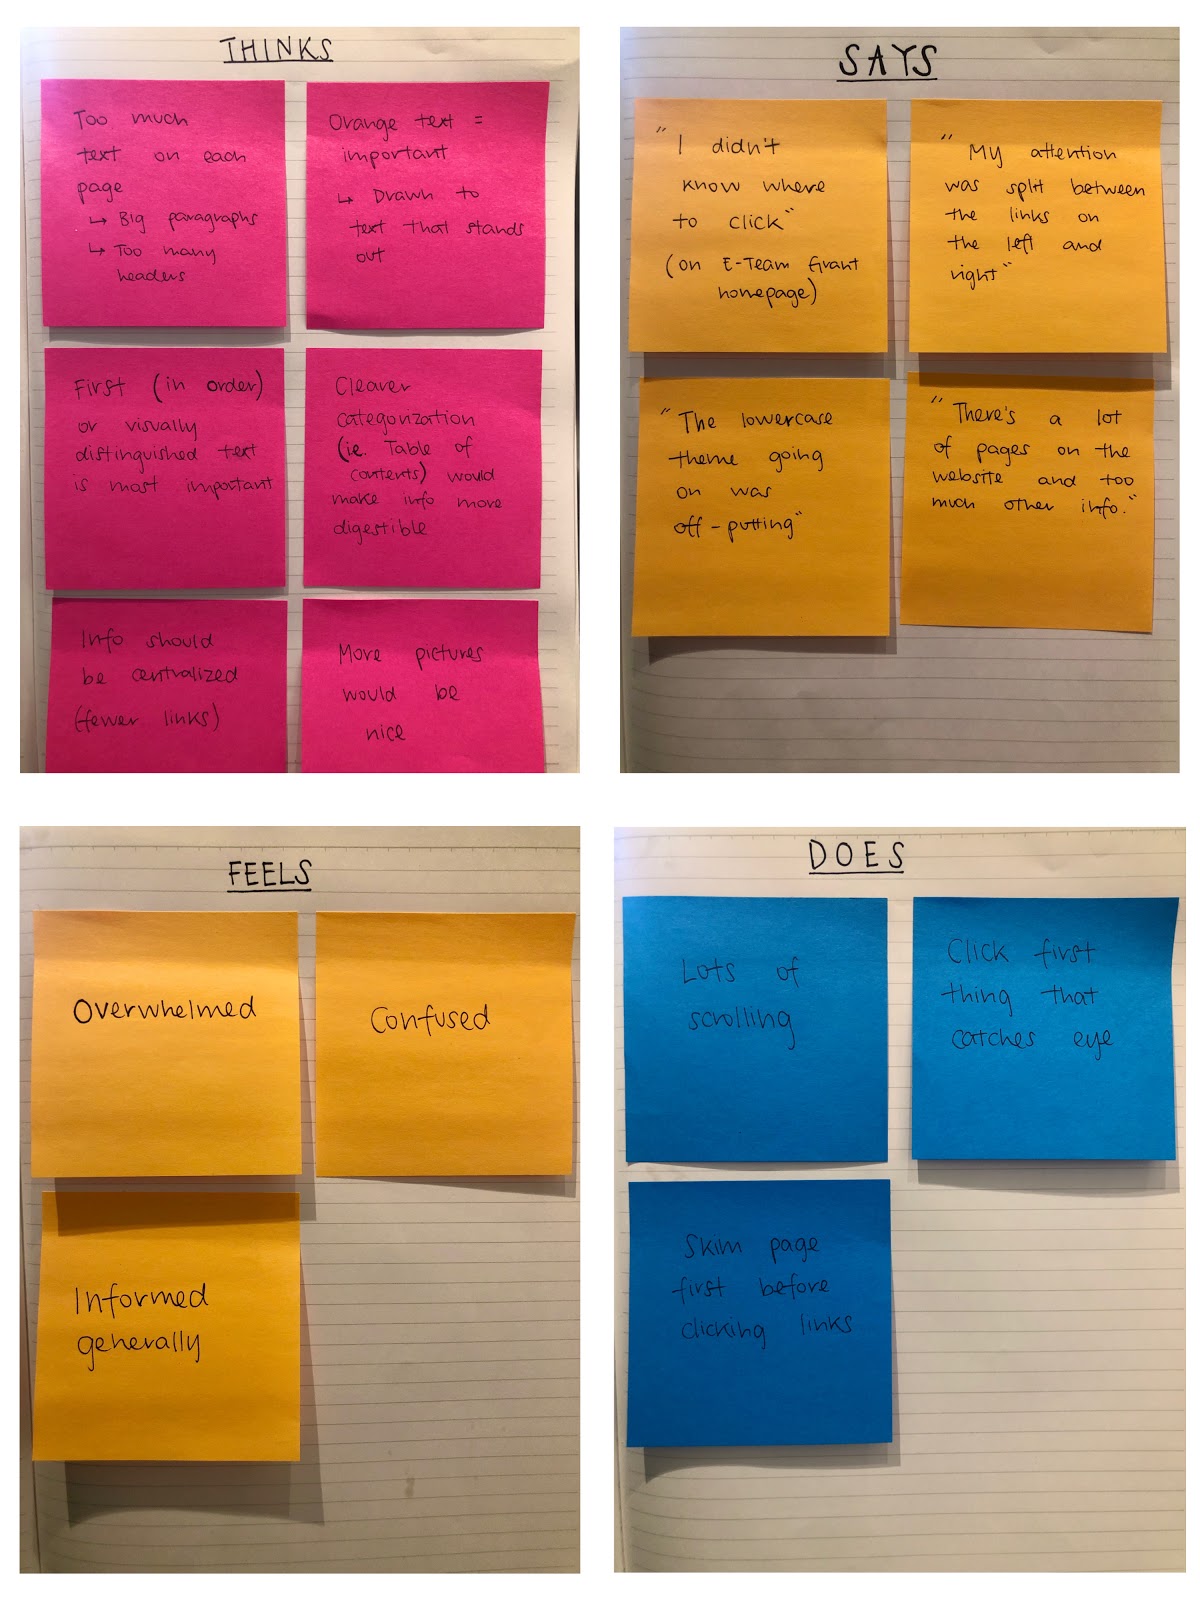 THINKS
Too much
text on each
page
↳ Big paragraphs
↳ Too many
headers
Orange text =
important
↳ Drawn to
text that stands
out
First (in order)
or visually
distinguished text
is most important
Clearer
categorization
(ie. Table of
contents) would
make info more
digestible
Info should
be centralized
(fewer links)
More pictures
would be
nice
SAYS
"I didn't
know where
to click"
(on E-Team Grant
homepage)
"My attention
was split between
the links on
the left and
right"
"The lowercase
theme going
on was
off-putting"
"There's a lot
of pages on the
website and too
much other info."
FEELS
Overwhelmed
Confused
Informed
generally
DOES
Lots of
scrolling
Click first
thing that
catches eye
Skim page
first before
clicking links